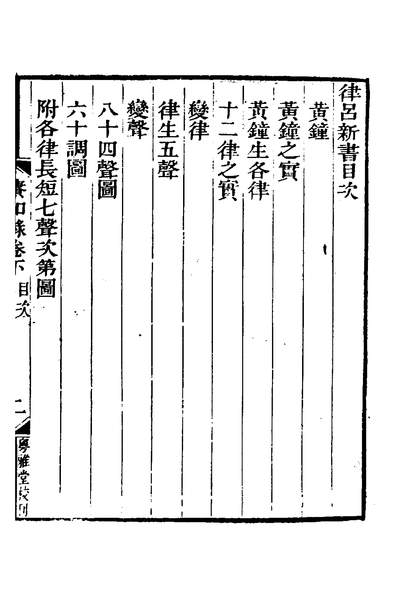 律呂新書目次
黃鐘
黃鐘之實
黃鐘生各律
十二律之實
變律
律生五聲
變聲
八十四聲圖
六十調圖
附各律長短七聲次第圖
賡和錄卷下 目次
二
粵雅堂校刊